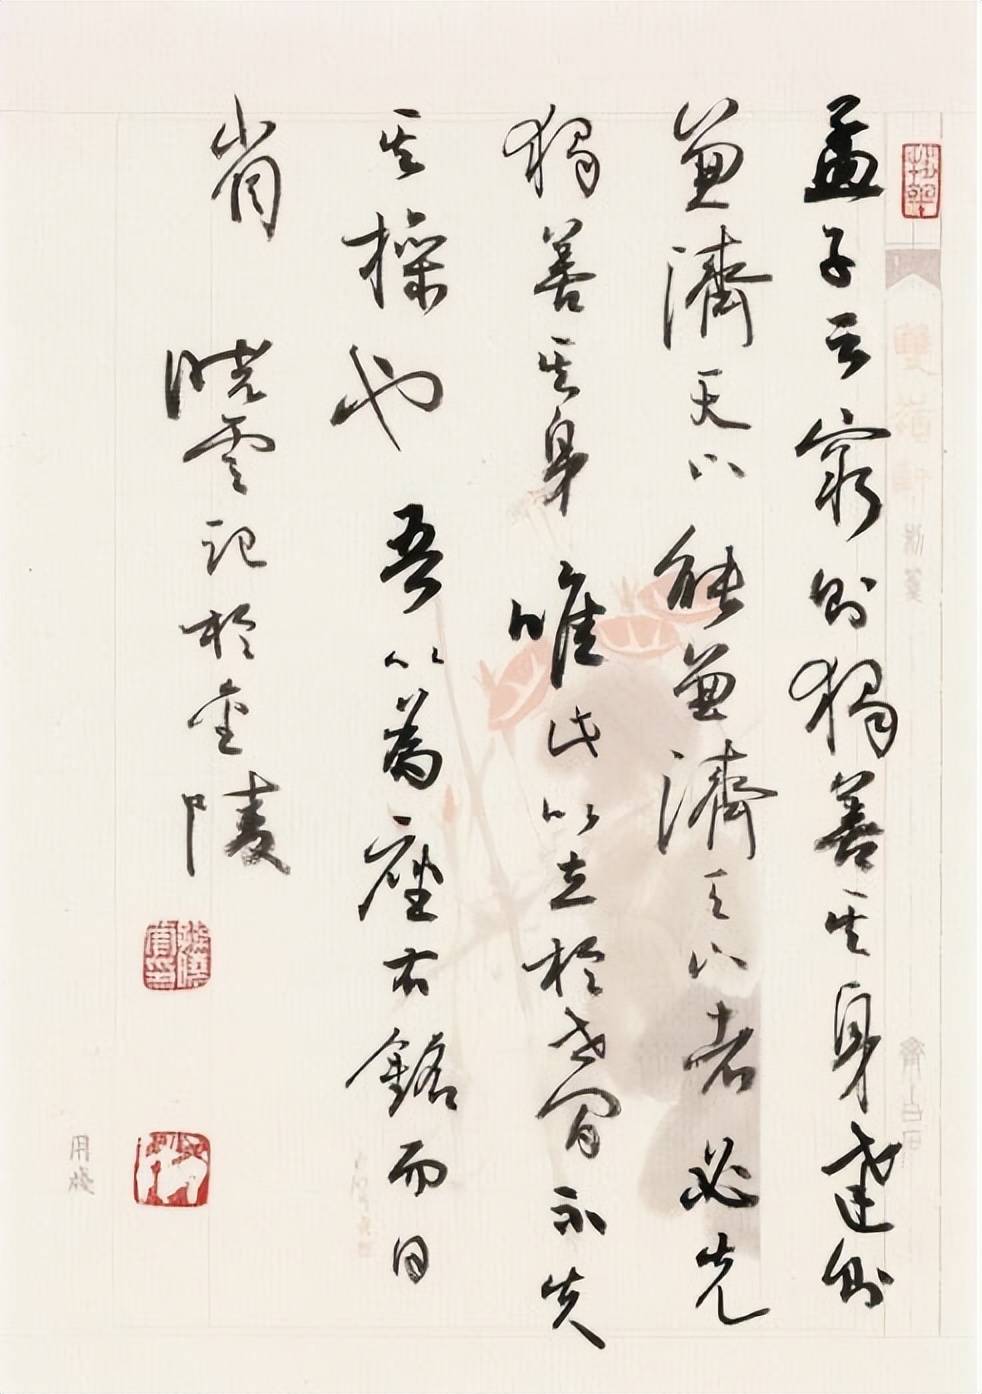 孟子云窮則獨善其身達則
兼濟天下能兼濟天下者必先
獨善其身唯此以立於世間不失
其操也吾以為座右銘而日
省
曉雲記於金陵
齊白石
用箋